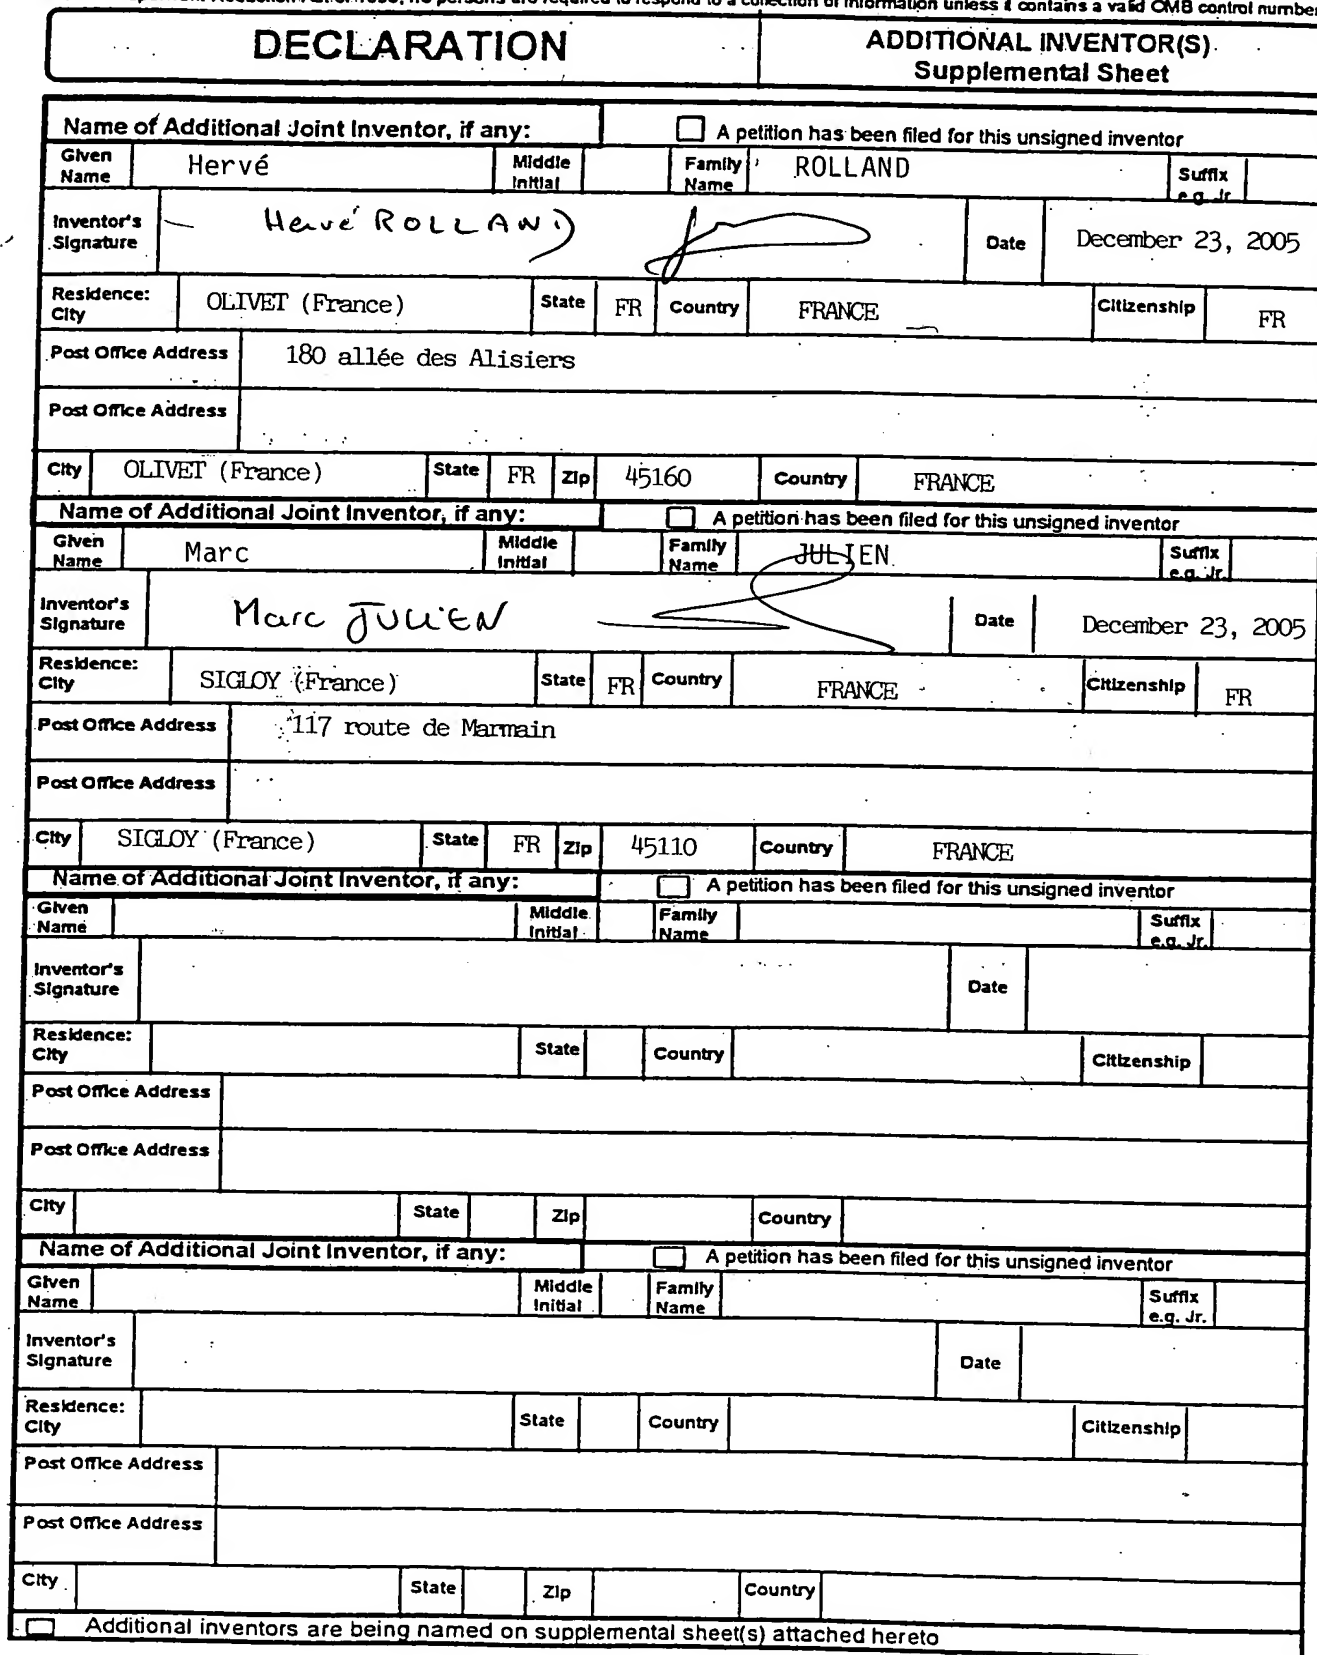 Reduction Act of 1995, no persons are required to respond to a collection of information unless it contains a valid OMB control number
DECLARATION
ADDITIONAL INVENTOR(S)
Supplemental Sheet
Name of Additional Joint Inventor, if any:
A petition has been filed for this unsigned inventor
Given Name Hervé Middle Initial Family Name ROLLAND Suffix e.g. Jr.
Inventor's Signature Hervé ROLLAND Date December 23, 2005
Residence: City OLIVET (France) State FR Country FRANCE Citizenship FR
Post Office Address 180 allée des Alisiers
Post Office Address
City OLIVET (France) State FR Zip 45160 Country FRANCE
Name of Additional Joint Inventor, if any:
A petition has been filed for this unsigned inventor
Given Name Marc Middle Initial Family Name JULIEN Suffix e.g. Jr.
Inventor's Signature Marc JULIEN Date December 23, 2005
Residence: City SIGLOY (France) State FR Country FRANCE Citizenship FR
Post Office Address 117 route de Marmain
Post Office Address
City SIGLOY (France) State FR Zip 45110 Country FRANCE
Name of Additional Joint Inventor, if any:
A petition has been filed for this unsigned inventor
Given Name Middle Initial Family Name Suffix e.g. Jr.
Inventor's Signature Date
Residence: City State Country Citizenship
Post Office Address
Post Office Address
City State Zip Country
Name of Additional Joint Inventor, if any:
A petition has been filed for this unsigned inventor
Given Name Middle Initial Family Name Suffix e.g. Jr.
Inventor's Signature Date
Residence: City State Country Citizenship
Post Office Address
Post Office Address
City State Zip Country
Additional inventors are being named on supplemental sheet(s) attached hereto